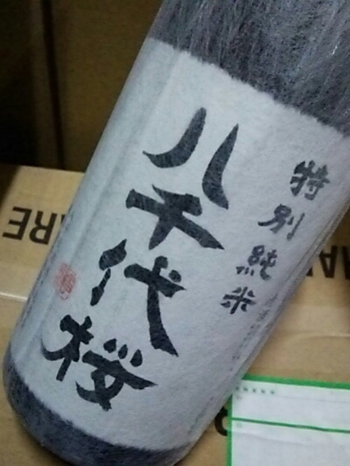 特別純米
八千代桜
ARE
MA